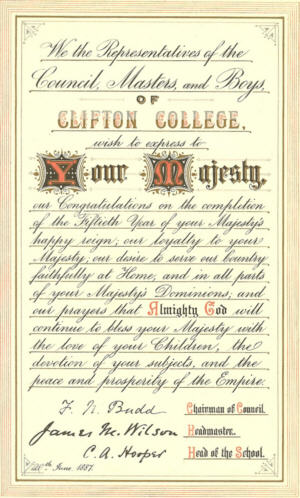 We the Representatives of the
Council, Masters, and Boys,
OF
CLIFTON COLLEGE,
wish to express to
Your Majesty,
our Congratulations on the completion
of the Fiftieth Year of your Majesty's
happy reign; our loyalty to your
Majesty; our desire to serve our Country
faithfully at Home, and in all parts
of your Majesty's Dominions; and
our prayers that Almighty God will
continue to bless your Majesty with
the love of your Children, the
devotion of your subjects, and the
peace and prosperity of the Empire.
F. N. Budd Chairman of Council.
James M. Wilson Headmaster.
C. A. Hooper Head of the School.
th June, 1887.